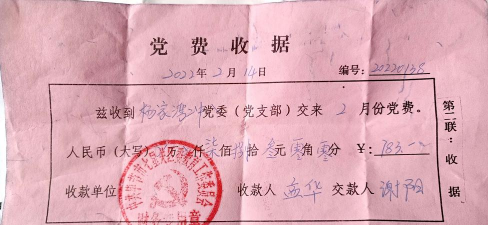 党费收据
2022年2月14日 编号：20220138
兹收到 杨家湾 党委（党支部）交来 2 月份党费。
人民币（大写） 万 仟柒佰捌拾叁元零角零分 ￥：783.-
收款单位 收款人 孟华 交款人 谢阳
第二联：收据